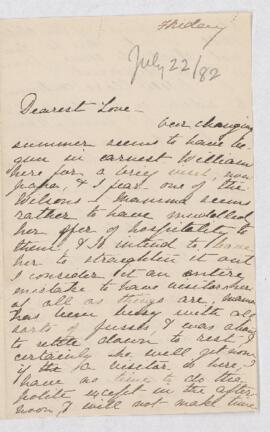 Friday
July 22/82
Dearest Love -
our changing
summer seems to have be
gun in earnest William
here for a brief visit, now
papa, & I fear one of the
Wilsons - Mamma seems
rather to have muddled
her offer of hospitality to
them, & I intend to leave
her to straighten it out
I consider it an entire
mistake to have visitors here
at all as things are, Mamma
has been busy with all
sorts of fusses, & was about
to settle down to rest &
certainly she will get none
if a visitor is here, I
have no time to do the
polite except in the after
noon, I will not make time